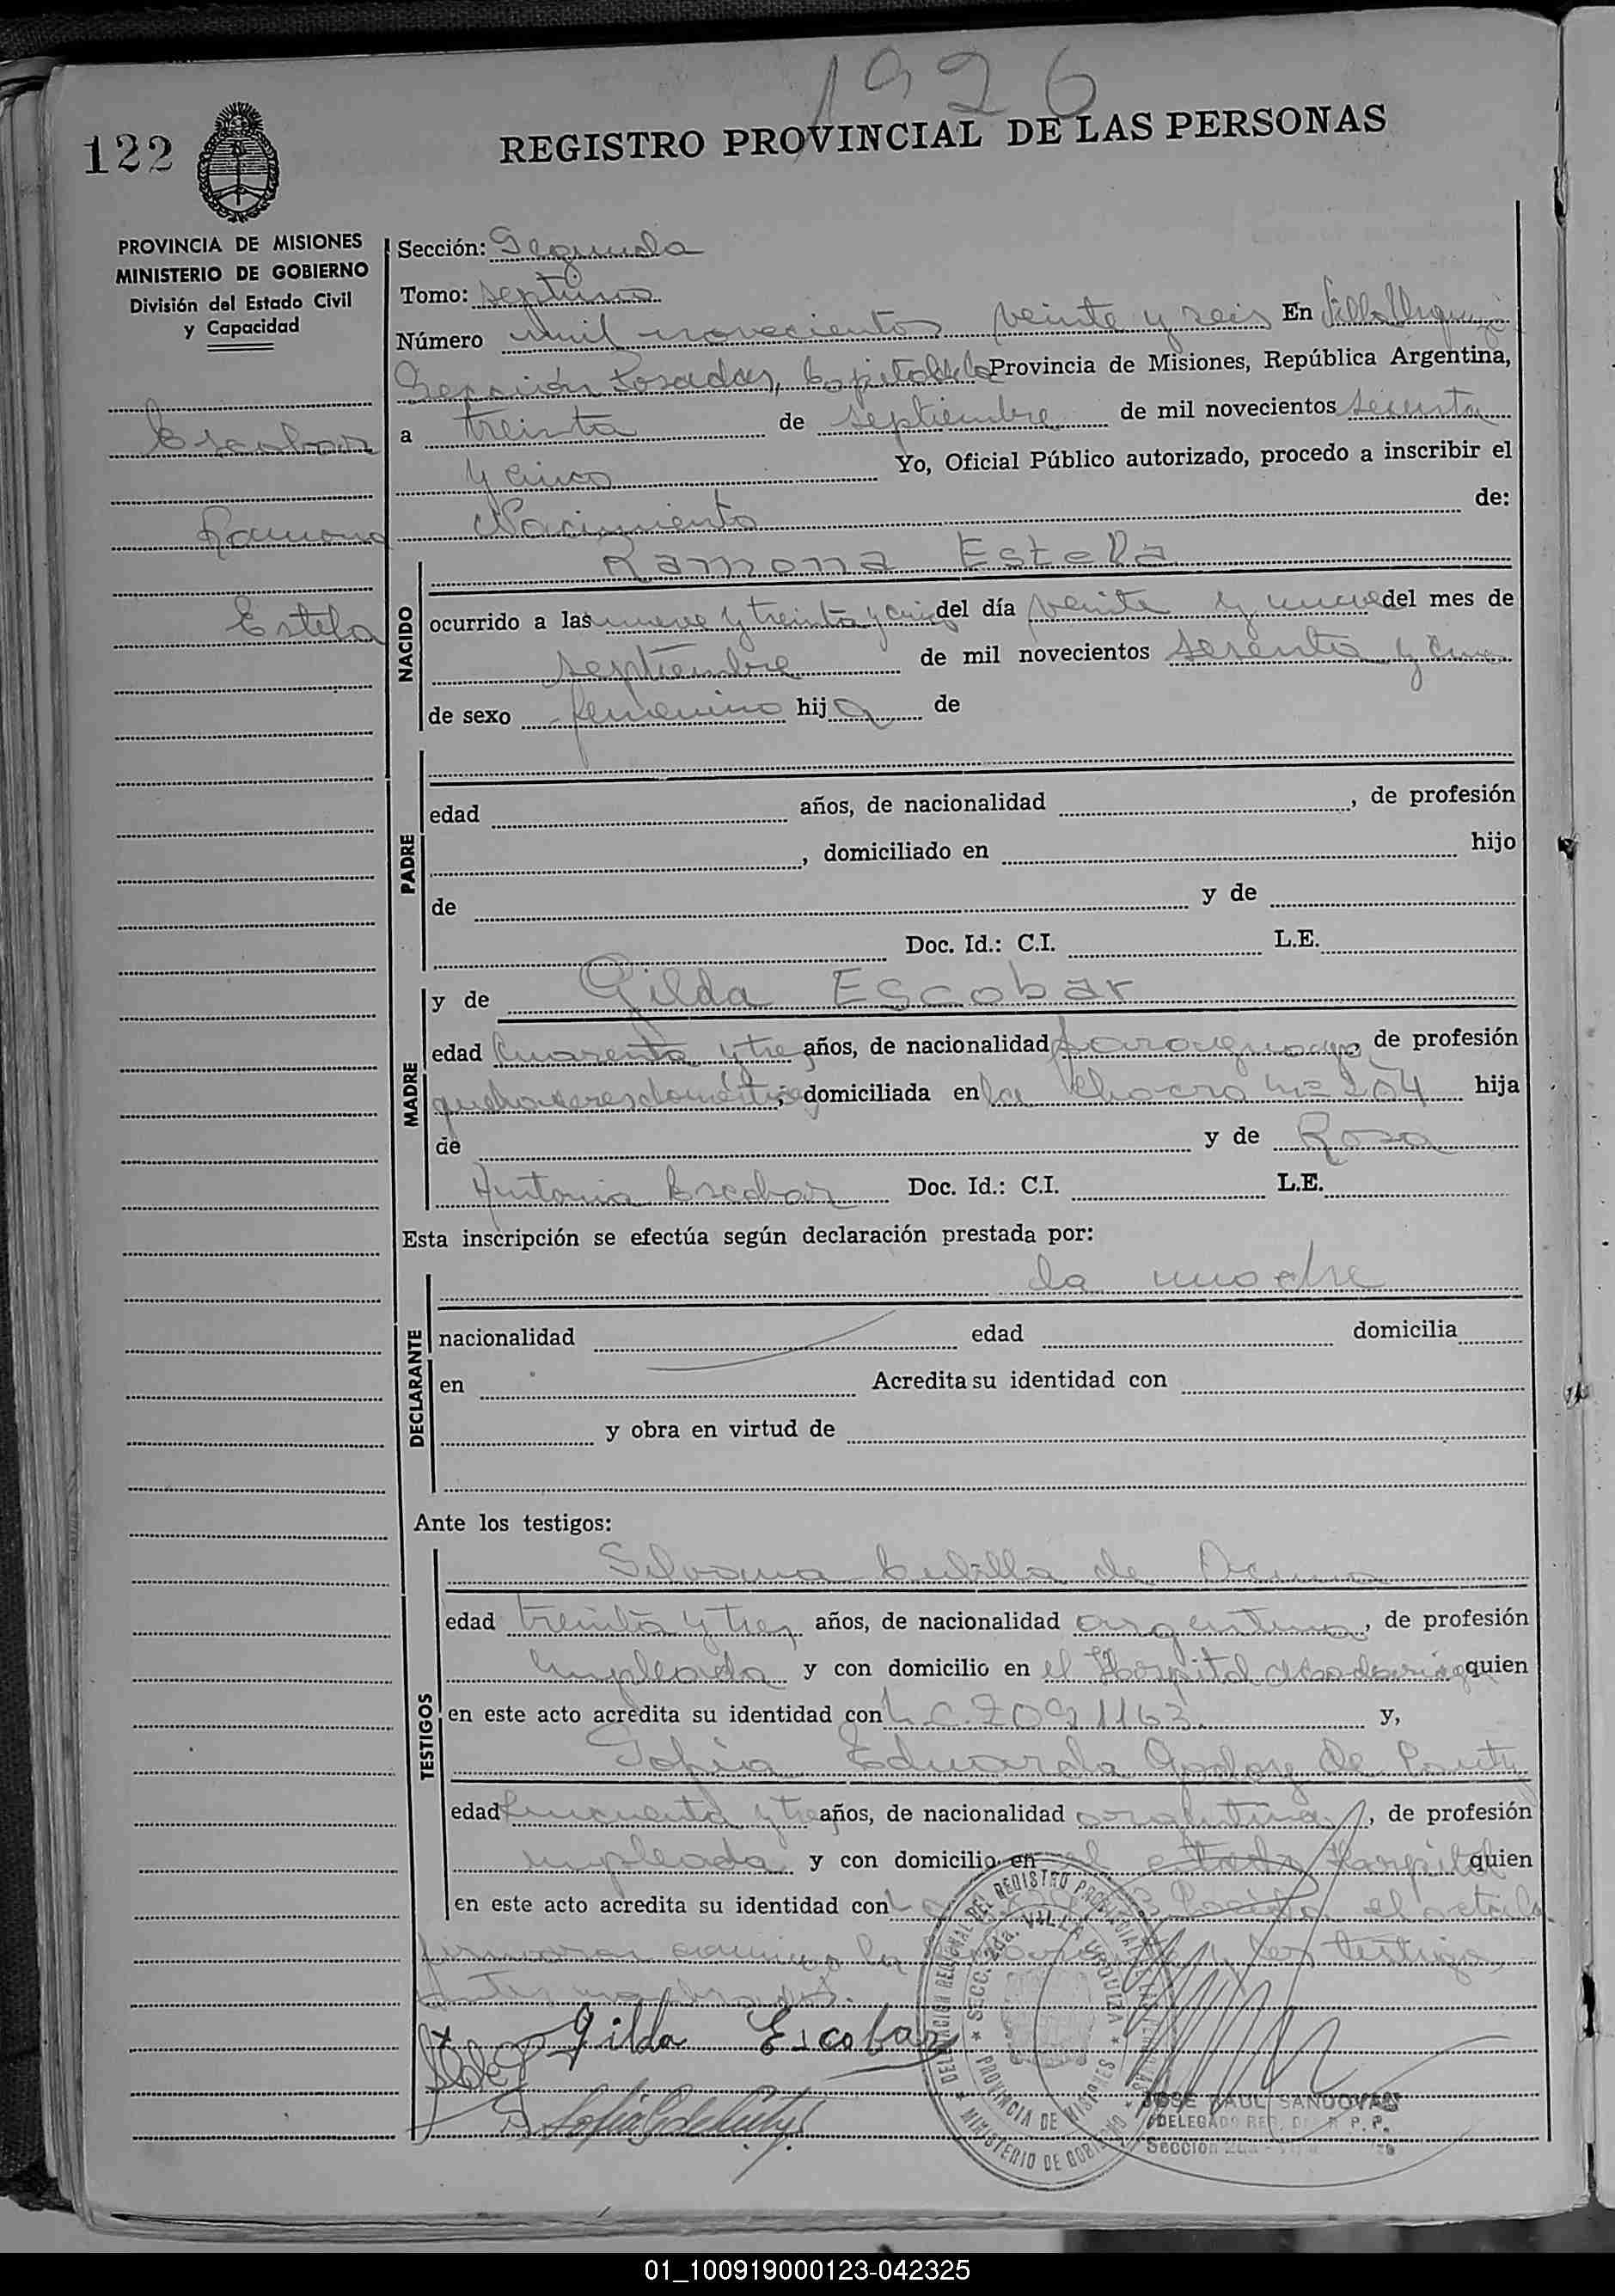 1926
122
REGISTRO PROVINCIAL DE LAS PERSONAS
PROVINCIA DE MISIONES
MINISTERIO DE GOBIERNO
División del Estado Civil
y Capacidad
Escobar
Ramona
Estela
Sección: Segunda
Tomo: septimo
Número mil novecientos veinte y seis En Villa Urquiza
Sección Posadas, Capital de la Provincia de Misiones, República Argentina,
a treinta de septiembre de mil novecientos sesenta
y cinco Yo, Oficial Público autorizado, procedo a inscribir el
Nacimiento de:
NACIDO
Ramona Estela
ocurrido a las nueve y treinta y cinco del día veinte y nueve del mes de
septiembre de mil novecientos sesenta y cinco
de sexo femenino hija de
PADRE
edad años, de nacionalidad , de profesión
, domiciliado en hijo
de y de
Doc. Id.: C.I. L.E.
MADRE
y de Gilda Escobar
edad cuarenta y tres años, de nacionalidad paraguaya de profesión
quehaceres domésticos; domiciliada en la Chacra nº 204 hija
de y de Rosa
Antonia Escobar Doc. Id.: C.I. L.E.
Esta inscripción se efectúa según declaración prestada por:
DECLARANTE
la madre
nacionalidad edad domicilia
en Acredita su identidad con
y obra en virtud de
Ante los testigos:
TESTIGOS
Silvana de
edad treinta y tres años, de nacionalidad argentina, de profesión
empleada y con domicilio en el Hospital Madariaga quien
en este acto acredita su identidad con L.C. 7091163. y,
Sofia Eduarda Godoy de
edad cincuenta y tres años, de nacionalidad argentina, de profesión
empleada y con domicilio en el Hospital quien
en este acto acredita su identidad con L el acta la
firmaron conmigo la y los testigos
antes nombrados.
Gilda Escobar
DELEGACION REGIONAL DEL REGISTRO PROVINCIAL DE LAS PERSONAS
SECC. 2da. VILLA URQUIZA
PROVINCIA DE MISIONES
MINISTERIO DE GOBIERNO
JOSE RAUL SANDOVAL
DELEGADO REG. R. P. P.
Sección 2da -
01_100919000123-042325